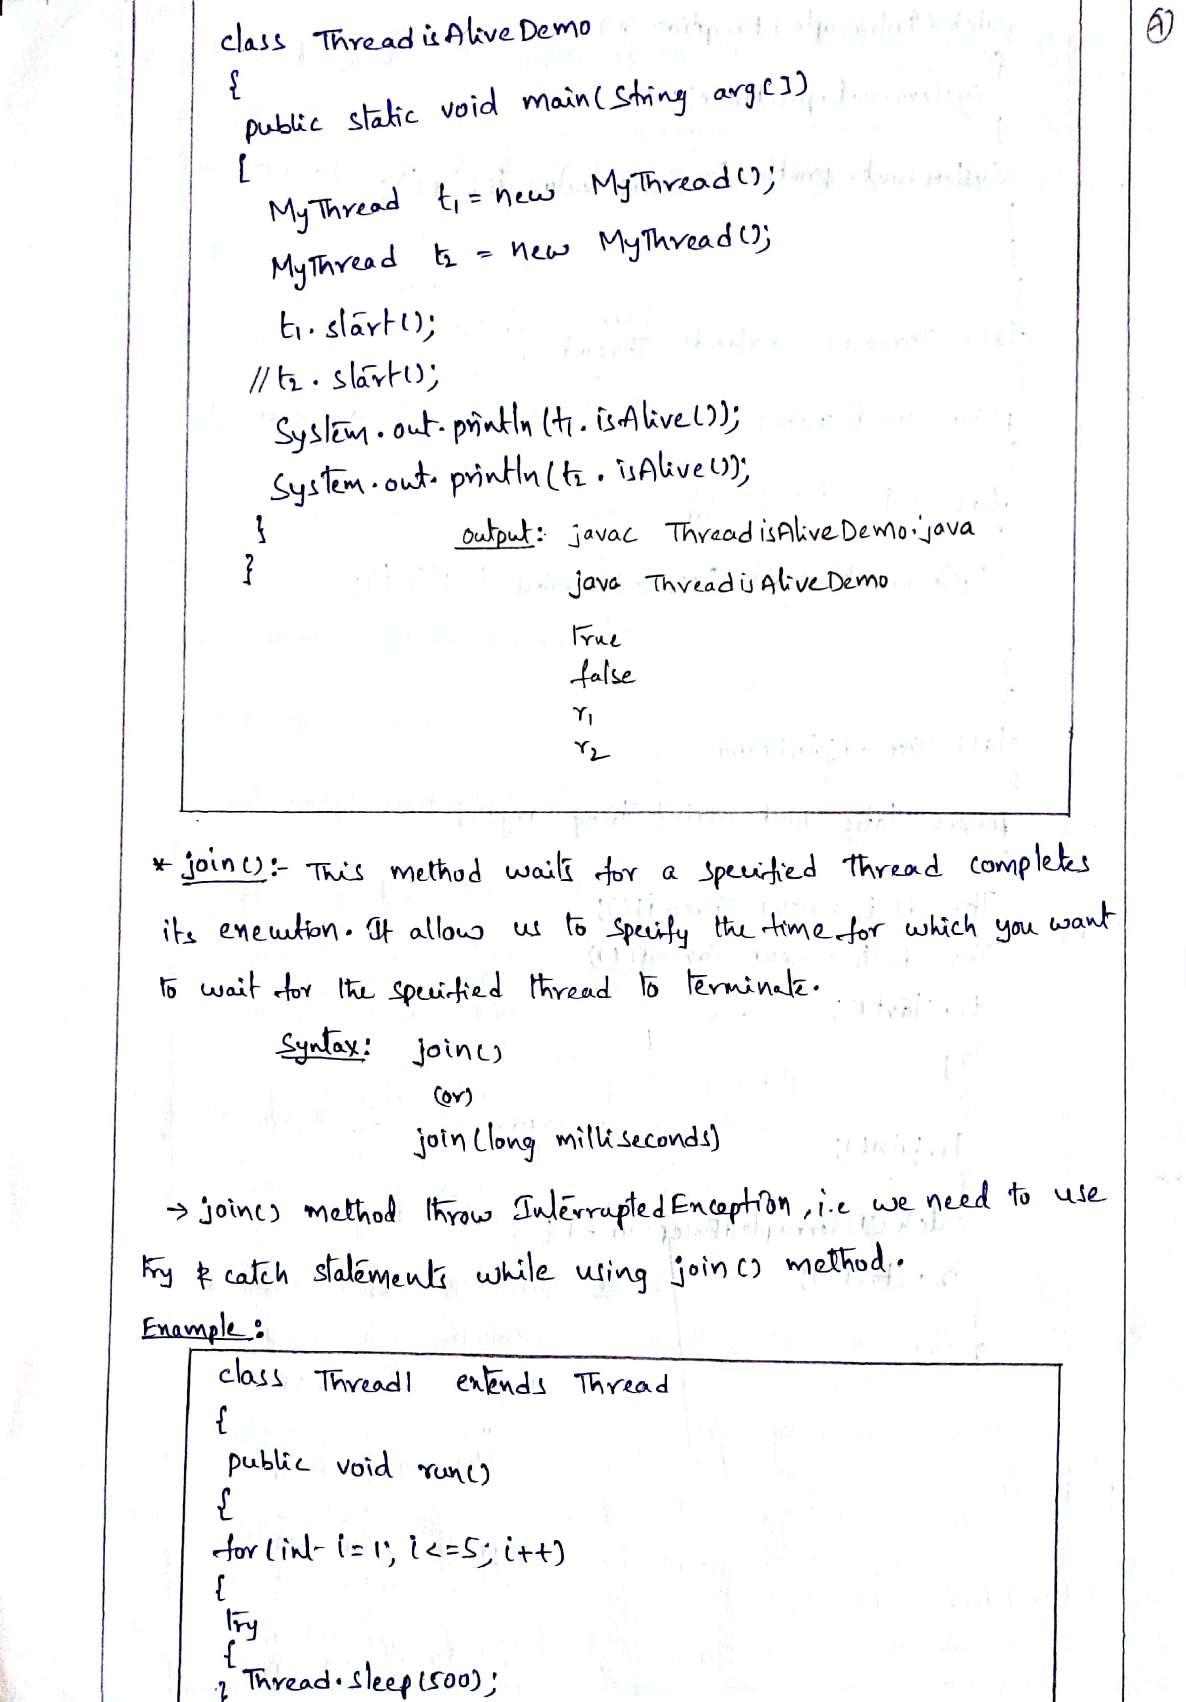 class ThreadisAliveDemo
{
public static void main(String arg[])
{
MyThread t1 = new MyThread();
MyThread t2 = new MyThread();
t1.start();
//t2.start();
System.out.println(t1.isAlive());
System.out.println(t2.isAlive());
}
}
output: javac ThreadisAliveDemo.java
java ThreadisAliveDemo
True
false
r1
r2
* join():- This method waits for a specified thread completes
its execution. It allow us to specify the time for which you want
to wait for the specified thread to terminate.
Syntax: join()
(or)
join(long milliseconds)
→ join() method throw InterruptedException, i.e we need to use
try & catch statements while using join() method.
Example:
class Thread1 extends Thread
{
public void run()
{
for(int i=1; i<=5; i++)
{
try
{
Thread.sleep(500);
}